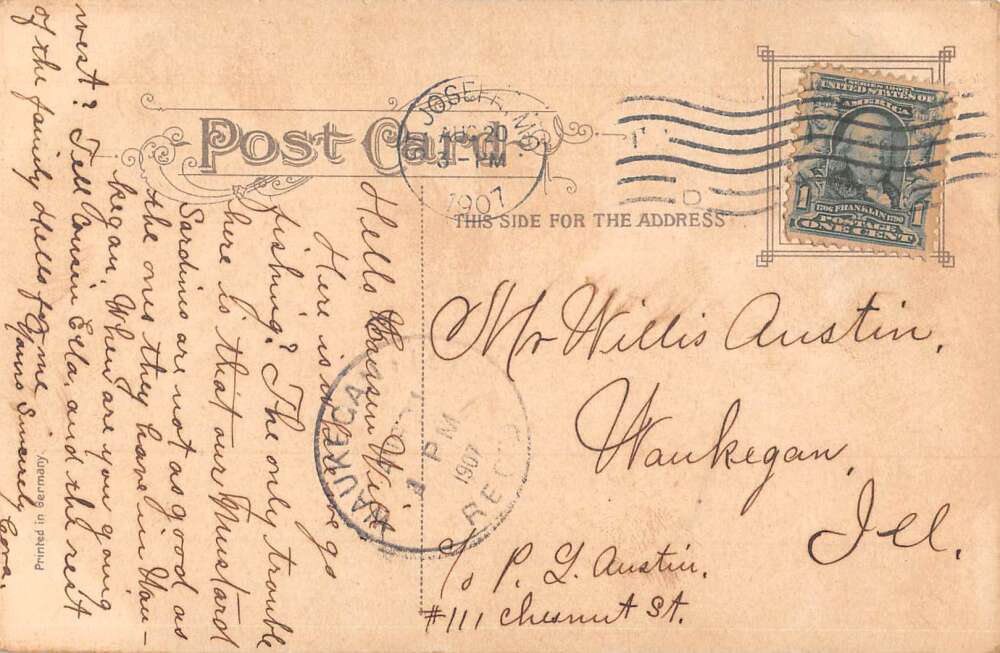 Post Card
ST. JOSEPH, MICH.
AUG 20
3 - PM
1907
SERIES 1902
UNITED STATES OF
AMERICA
1706 FRANKLIN 1790
1 POSTAGE 1
ONE CENT
THIS SIDE FOR THE ADDRESS
Mr Willis Austin,
Waukegan,
Ill.
c/o P. L. Austin,
#111 Chesnut St.
WAUKEGAN
1 PM
1907
REC'D
Hello Cousin Will
Here is where we go
fishing? The only trouble
here is that our Mustard
Sardines are not as good as
the ones they have in Wau-
kegan. When are you going
west? Tell Cousin Etta, and the rest
of the family Hello for me
Yours Sincerely
Cora.
Printed in Germany